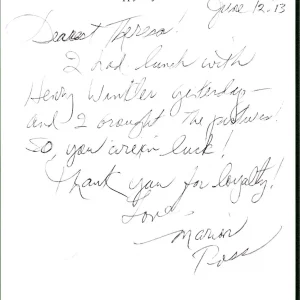 June 12, 13
Dearest Theresa!
I had lunch with
Henry Winkler yesterday—
and I brought the pictures!
So, you were in luck!
Thank you for loyalty!
Love
Marion
Ross